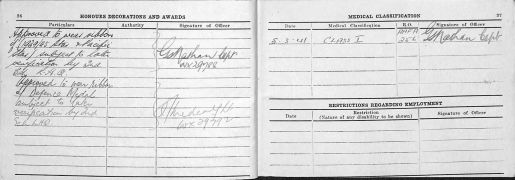 36
HONOURS DECORATIONS AND AWARDS
Particulars Authority Signature of Officer
Approved to wear ribbon
of 1939/45 Star & Pacific
Star subject to later
verification by 2nd
Ech. L.H.Q.
G Nathan Capt
Approved to wear ribbon
of Defence Medal
subject to later
verification by 2nd
Ech LHQ
37
MEDICAL CLASSIFICATION
Date Medical Classification R.O. Signature of Officer
5.3.41 CLASS I G Nathan Capt
RESTRICTIONS REGARDING EMPLOYMENT
Date Restriction Signature of Officer
(Nature of any disability to be shown)